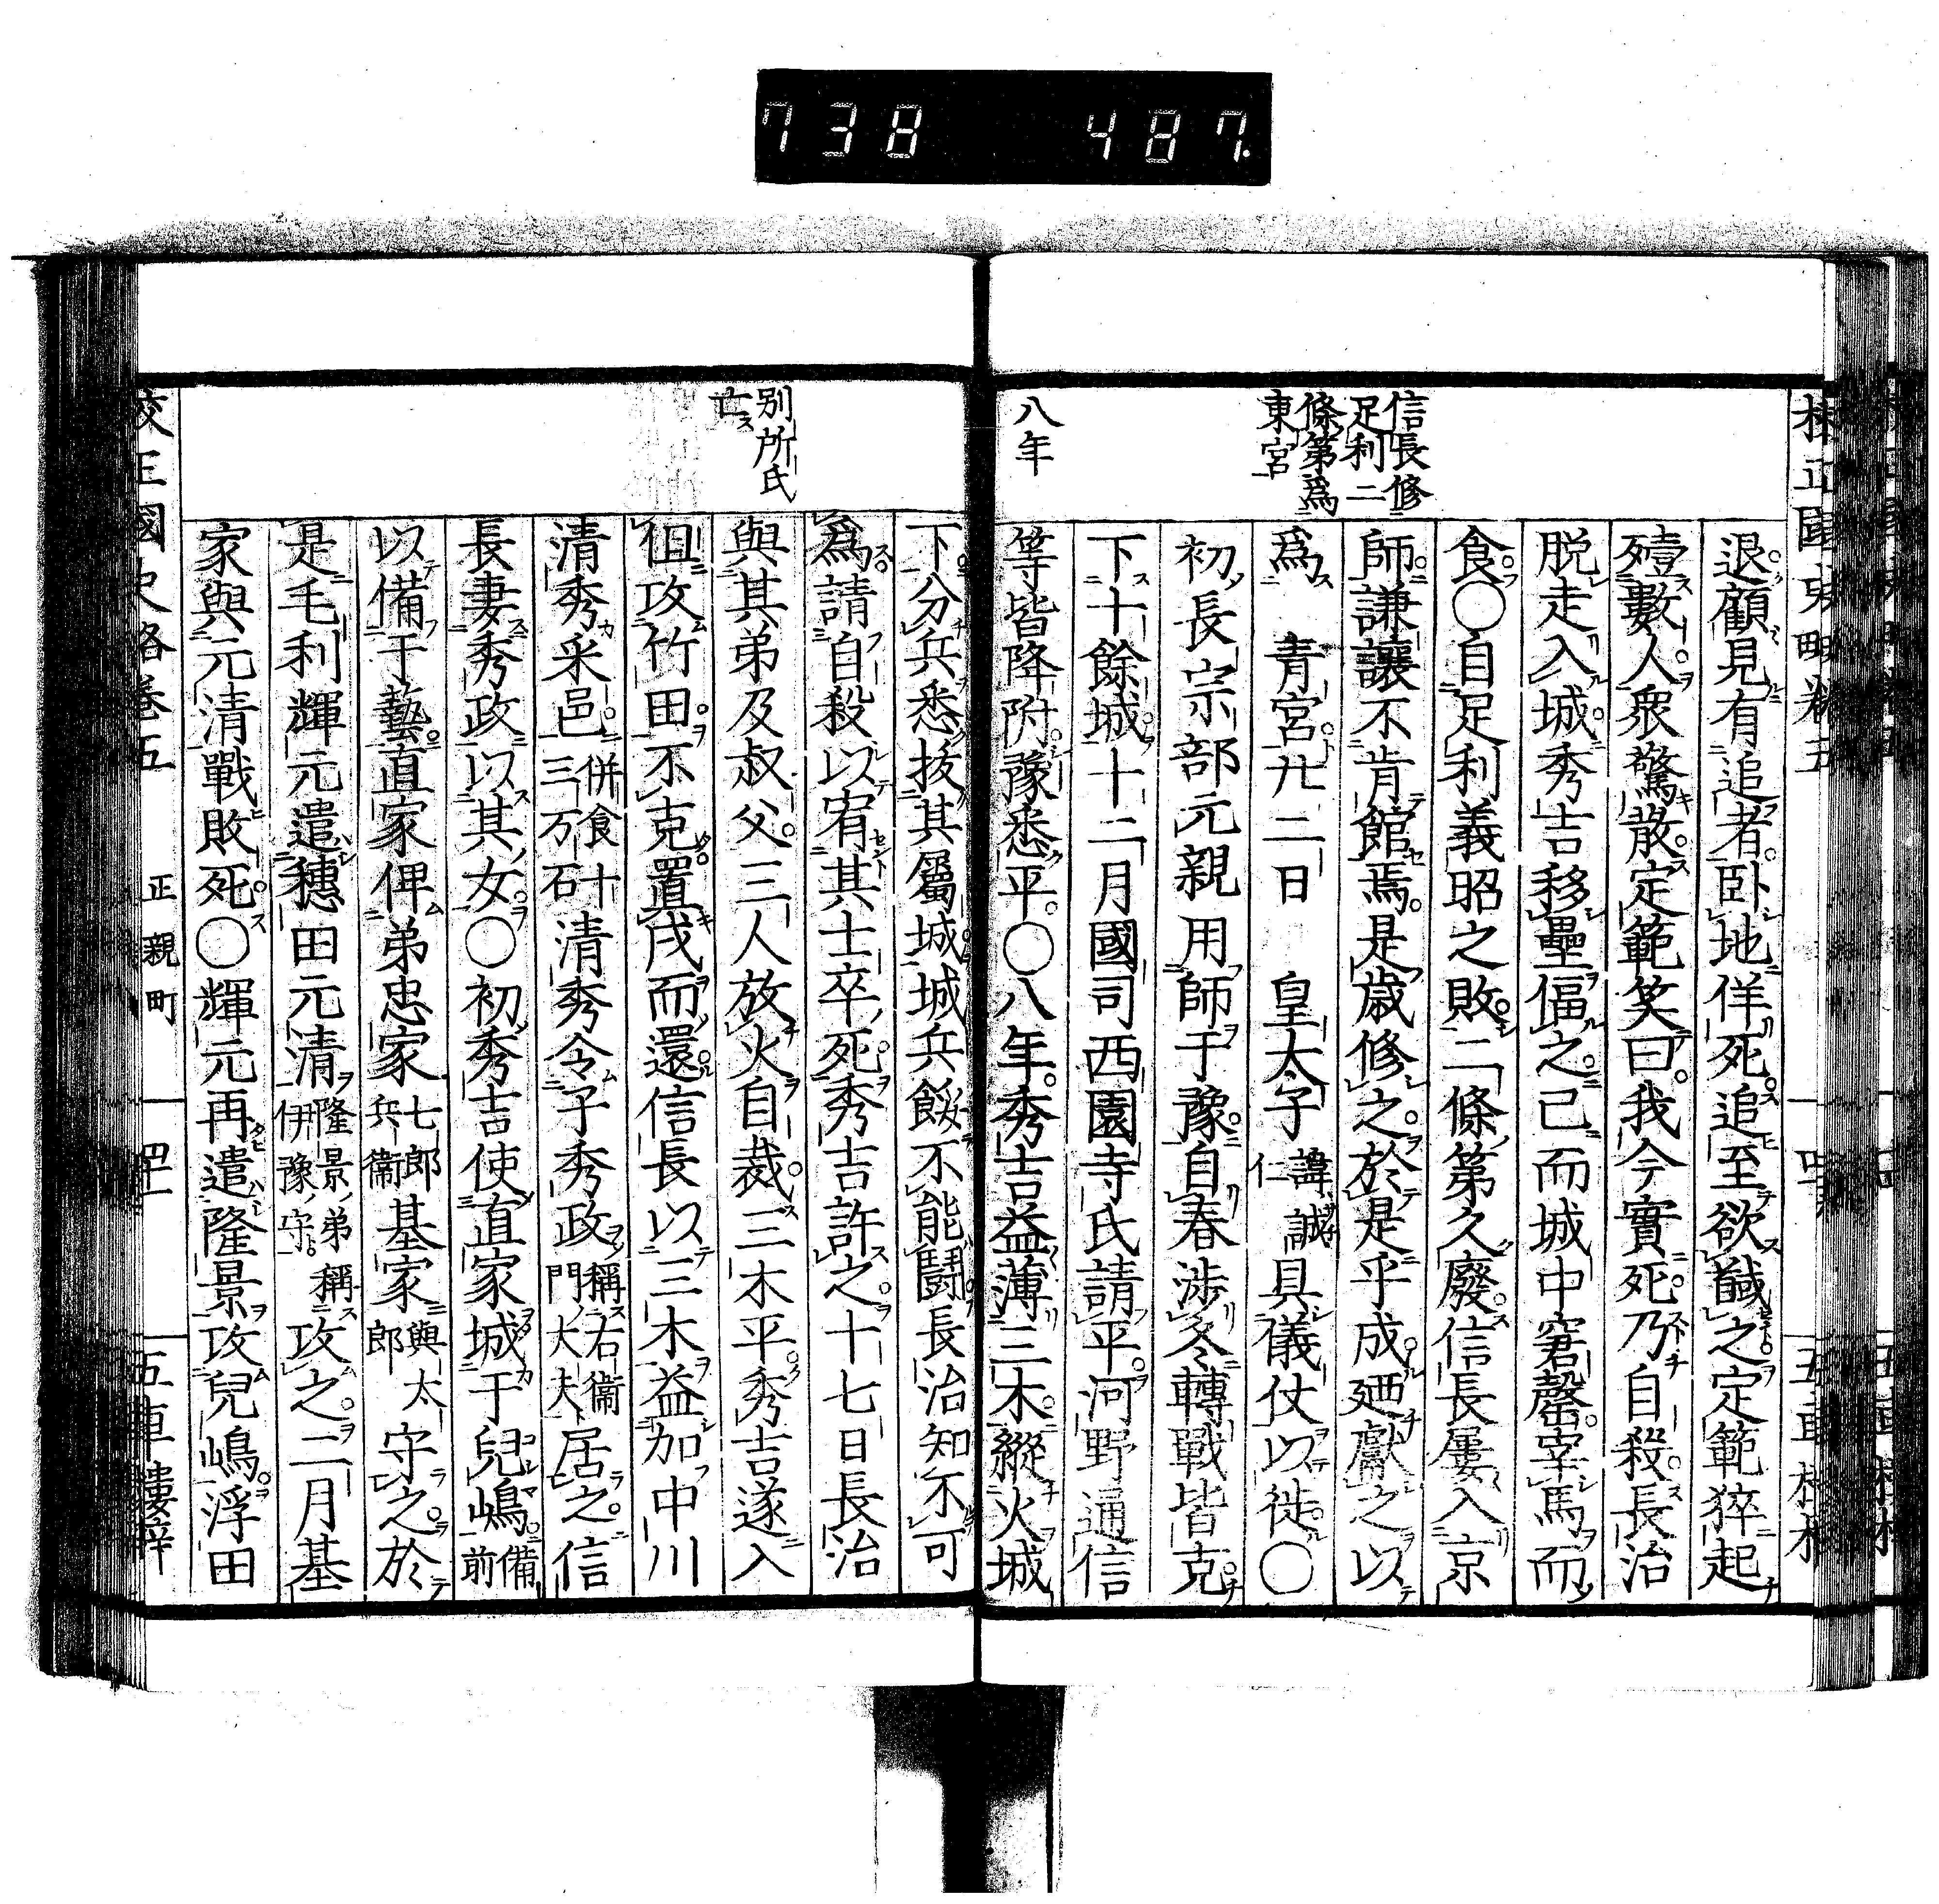 738 487.
信長修
足利二
條第爲
東宮
八年
退顧見有追者卧地佯死追至欲馘之定範猝起
殪數人衆驚散定範笑曰我今實死乃自殺長治
脱走入城秀吉移壘偪之已而城中窘罄宰馬而
食○自足利義昭之敗二條第久廢信長屢入京
師謙讓不肯館焉是歳修之於是乎成廼獻之以
爲 青宮廿二日 皇太子諱誠仁具儀仗以徙○
初長宗部元親用師于豫自春渉冬轉戰皆克
下十餘城十二月國司西園寺氏請平河野通信
等皆降附豫悉平○八年秀吉益薄三木縱火城
別所氏
亡
下分兵悉拔其屬城城兵餒不能鬪長治知不可
爲請自殺以宥其士卒死秀吉許之十七日長治
與其弟及叔父三人放火自裁三木平秀吉遂入
徂攻竹田不克置戌而還信長以三木益加中川
清秀采邑併食十三万石清秀令子秀政稱右衞門大夫居之信
長妻秀政以其女○初秀吉使直家城于兒嶋備前
以備于藝直家俾弟忠家七郎兵衞基家與太郎守之於
是毛利輝元遣穗田元清隆景弟稱伊豫守攻之二月基
家與元清戰敗死○輝元再遣隆景攻兒嶋浮田
校正國史略卷五 正親町 四十一 五車樓梓